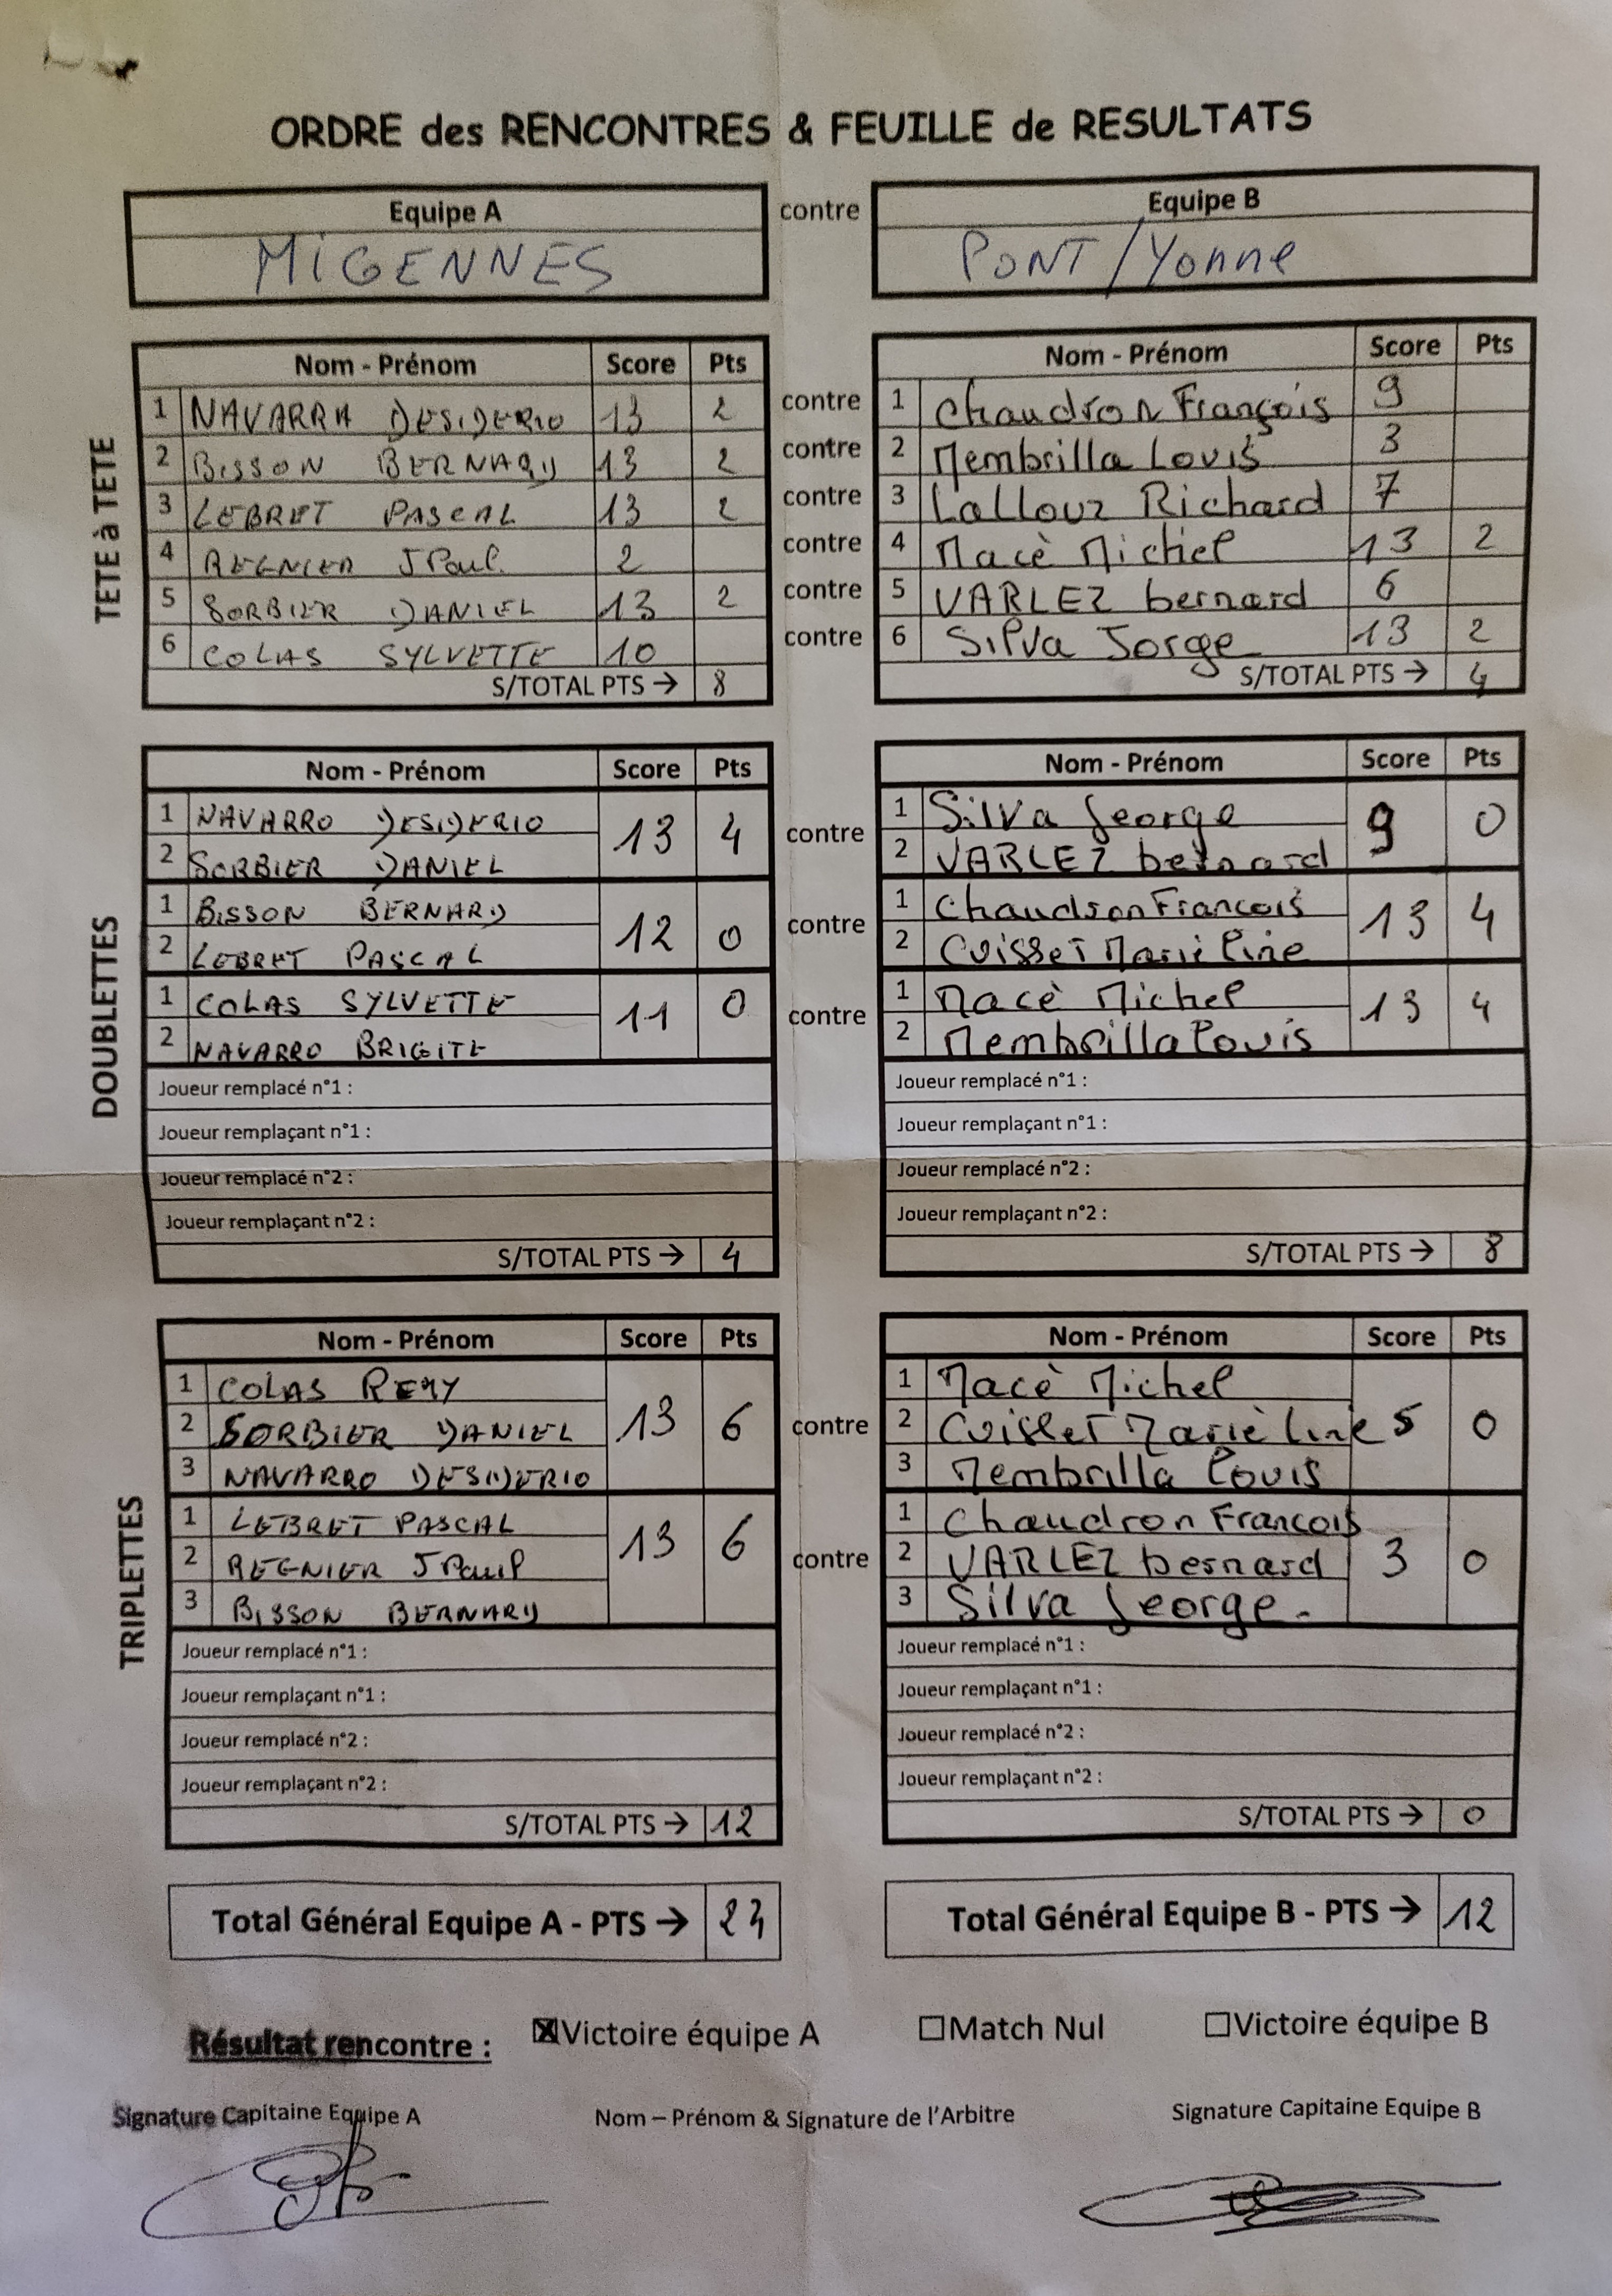 ORDRE des RENCONTRES & FEUILLE de RESULTATS
Equipe A contre Equipe B
MIGENNES PONT/Yonne
TETE à TETE
Nom - Prénom Score Pts Nom - Prénom Score Pts
1 NAVARRA DESIDERIO 13 2 contre 1 Chaudron François 9
2 BISSON BERNARD 13 2 contre 2 Membrilla Louis 3
3 LEBRET PASCAL 13 2 contre 3 Lallouz Richard 7
4 REGNIER J Paul 2 contre 4 Macè Michel 13 2
5 SORBIER DANIEL 13 2 contre 5 VARLEZ bernard 6
6 COLAS SYLVETTE 10 contre 6 Silva Jorge 13 2
S/TOTAL PTS → 8 S/TOTAL PTS → 4
DOUBLETTES
Nom - Prénom Score Pts Nom - Prénom Score Pts
1 NAVARRO DESIDERIO 13 4 contre 1 Silva George 9 0
2 SORBIER DANIEL 2 VARLEZ bernard
1 BISSON BERNARD 12 0 contre 1 Chaudron Francois 13 4
2 LEBRET PASCAL 2 Cuisset Marie line
1 COLAS SYLVETTE 11 0 contre 1 Macè Michel 13 4
2 NAVARRO BRIGITE 2 Membrilla Louis
Joueur remplacé n°1 : Joueur remplacé n°1 :
Joueur remplaçant n°1 : Joueur remplaçant n°1 :
Joueur remplacé n°2 : Joueur remplacé n°2 :
Joueur remplaçant n°2 : Joueur remplaçant n°2 :
S/TOTAL PTS → 4 S/TOTAL PTS → 8
TRIPLETTES
Nom - Prénom Score Pts Nom - Prénom Score Pts
1 COLAS REMY 1 Macè Michel
2 SORBIER DANIEL 13 6 contre 2 Cuisset Marie line 5 0
3 NAVARRO DESIDERIO 3 Membrilla Louis
1 LEBRET PASCAL 1 Chaudron Francois
2 REGNIER J Paul 13 6 contre 2 VARLEZ bernard 3 0
3 BISSON BERNARD 3 Silva George.
Joueur remplacé n°1 : Joueur remplacé n°1 :
Joueur remplaçant n°1 : Joueur remplaçant n°1 :
Joueur remplacé n°2 : Joueur remplacé n°2 :
Joueur remplaçant n°2 : Joueur remplaçant n°2 :
S/TOTAL PTS → 12 S/TOTAL PTS → 0
Total Général Equipe A - PTS → 24 Total Général Equipe B - PTS → 12
Résultat rencontre : ☒Victoire équipe A ☐Match Nul ☐Victoire équipe B
Signature Capitaine Equipe A Nom – Prénom & Signature de l'Arbitre Signature Capitaine Equipe B